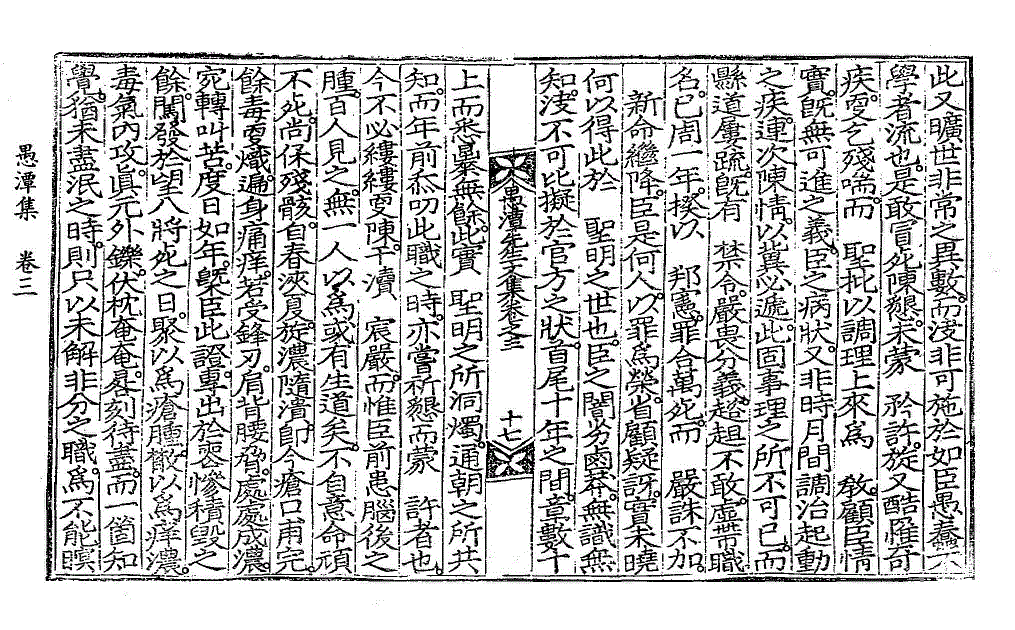 此又曠世非常之異數而決非可施於如臣愚蠢不
學者流也是敢冒死陳懇未蒙 矜許旋又酷罹奇
疾更乞殘喘而 聖批以調理上來爲 敎顧臣情
實旣無可進之義臣之病狀又非時月間調治起動
之疾連次陳情以冀必遞此固事理之所不可已而
縣道屢䟽旣有 禁令嚴畏分義趑趄不敢虛帶職
名已周一年揆以 邦憲罪合萬死而 嚴誅不加
新命繼降臣是何人以罪爲榮省顧疑訝實未曉
何以得此於 聖明之世也臣之闇劣鹵莽無識無
知決不可比擬於官方之狀首尾十年之間章數十
愚潭先生文集卷之三 十七
上而悉暴無餘此實 聖明之所洞燭通朝之所共
知而年前忝叨此職之時亦嘗祈懇而蒙 許者也
今不必縷縷更陳干瀆 宸嚴而惟臣前患腦後之
腫百人見之無一人以爲或有生道矣不自意命頑
不死尚保殘骸自春浹夏旋濃隨潰卽今瘡口甫完
餘毒更熾遍身痛痒若受鋒刃肩背腰脅處處成濃
宛轉叫苦度日如年槩臣此證專出於喪慘積毀之
餘闖發於望八將死之日聚以爲瘡腫散以爲痒濃
毒氣內攻眞元外鑠伏枕奄奄晷刻待盡而一箇知
覺猶未盡泯之時則只以未解非分之職爲不能瞑
愚潭集 卷三